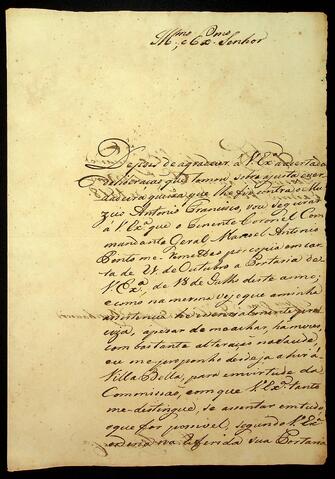 Illmo. e Exmo. Senhor
Depois de agradecer á V Exa. a acertada
deliberação que tomou sobre a justa e ver-
dadeira queixa, que lhe fiz contra o
Antonio Francisco, vou segurar
á V Exa. que o Tenente Coronel Com-
mandante Geral Manoel Antonio
Pinto me remetteo por copia em car-
ta de 21 de Outubro a Portaria de
V Exa. de 18 de Julho deste anno;
e como na mesma vejo que a minha
assistencia he evidentemente preci-
za, apesar de me achar, há mezes,
com bastante alteração na saude,
eu me proponho desde já a hir á
Villa Bella, para em virtude da
Commissão, com que V Exa. tanto
me distingue, se assentar em tudo
o que for possivel, segundo V Exa.
ordena na referida sua Portaria